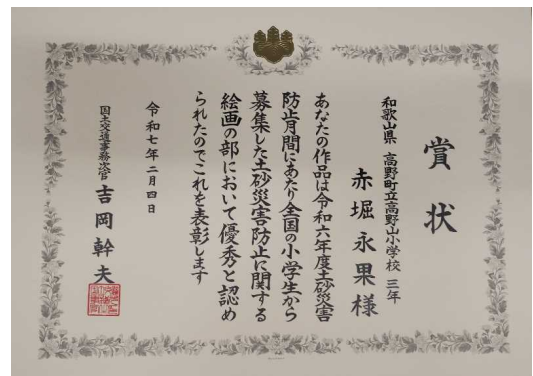 賞状
和歌山県 高野町立高野山小学校 三年
赤堀永果様
あなたの作品は令和六年度土砂災害
防止月間にあたり全国の小学生から
募集した土砂災害防止に関する
絵画の部において優秀と認め
られたのでこれを表彰します
令和七年二月四日
国土交通事務次官 吉岡幹夫